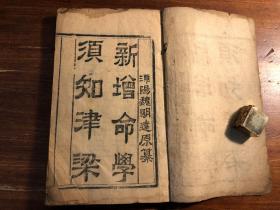 潭陽魏明遠原纂
新增命學
須知津梁